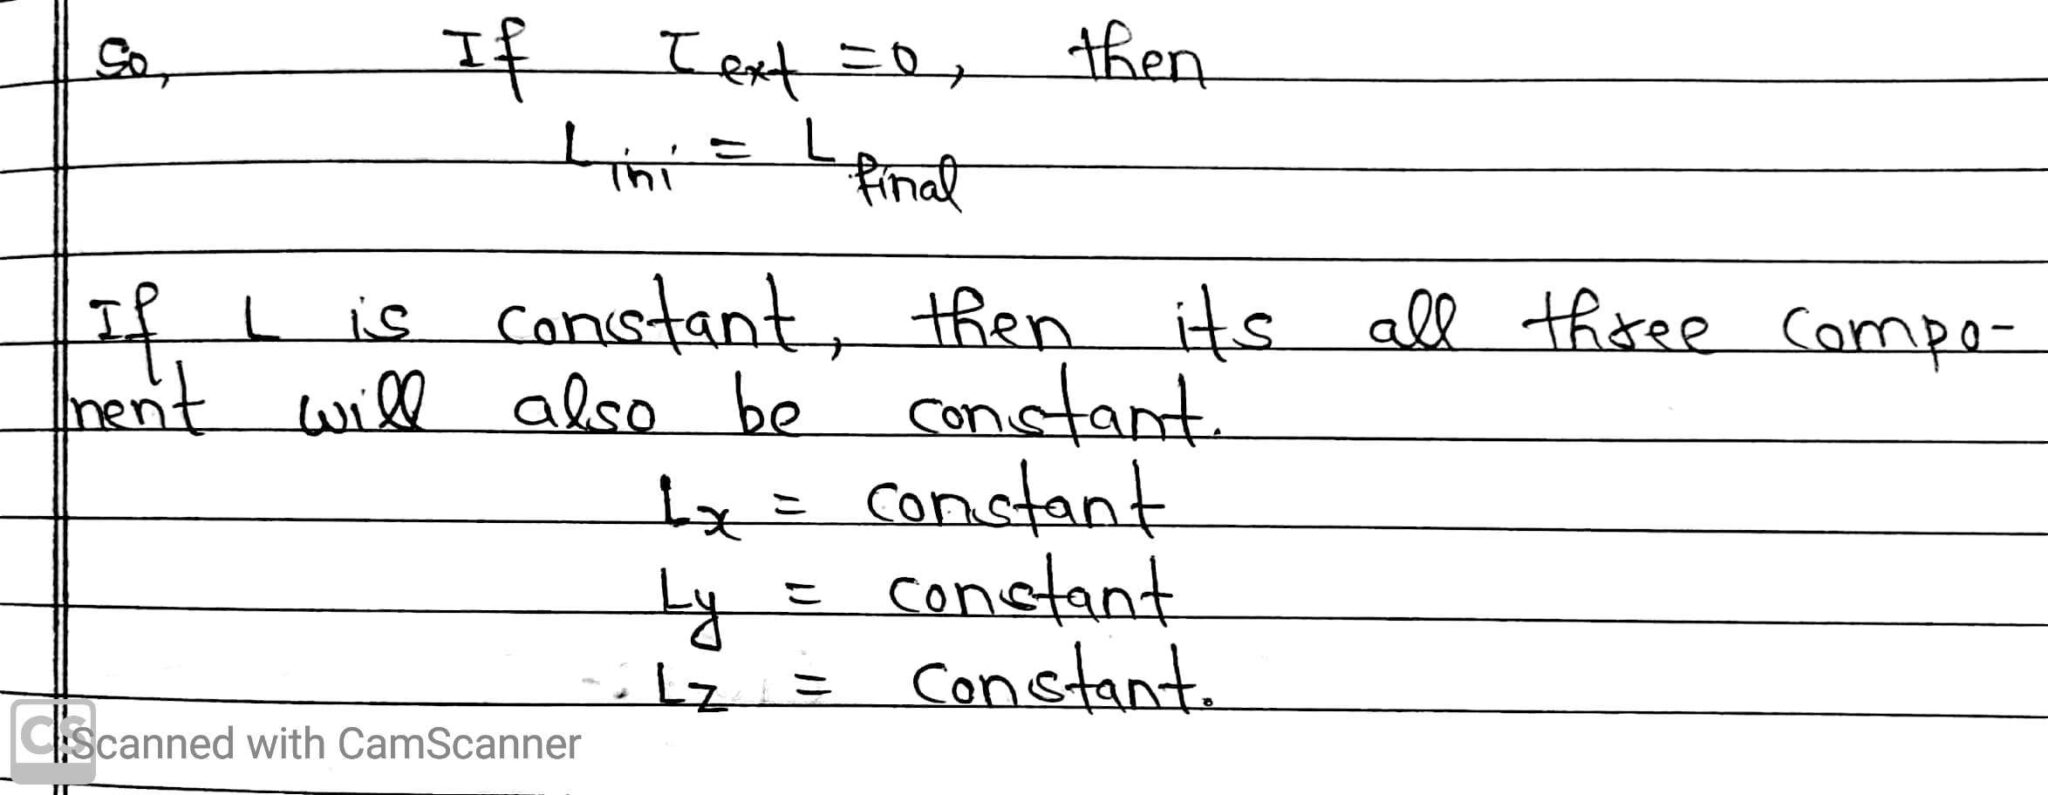 So, If τext = 0, then
Lini = Lfinal
If L is constant, then its all three compo-
nent will also be constant.
Lx = constant
Ly = constant
Lz = constant.
CS Scanned with CamScanner